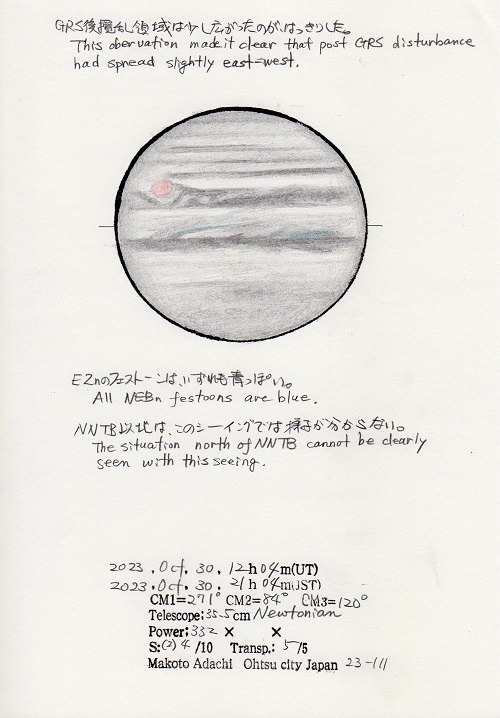 GRS後擾乱領域は少し広がったのが、はっきりした。
This obervation made it clear that post GRS disturbance
had spread slightly east-west.
EZnのフェストーンは、いずれも青っぽい。
All NEBn festoons are blue.
NNTB以北は、このシーイングでは様子が分からない。
The situation north of NNTB cannot be clearly
seen with this seeing.
2023, Oct, 30, 12h 04m(UT)
2023, Oct, 30, 21h 04m(JST)
CM1=271° CM2=84° CM3=120°
Telescope: 35.5cm Newtonian
Power: 332 × ×
S:(2) 4 /10 Transp.: 5/5
Makoto Adachi Ohtsu city Japan 23-111